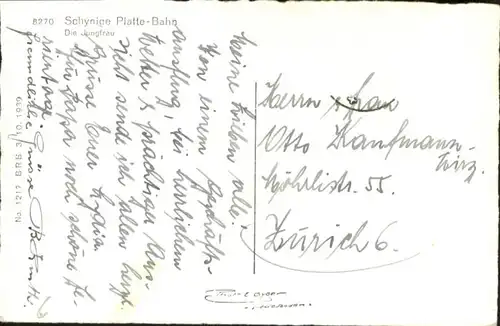 8270 Schynige Platte-Bahn
Die Jungfrau
No. 1217 BRB 3.10.1939
Meine Lieben alle.
Von einem Geschäfts-
ausflug, bei herrlichem
Wetter & prächtiger Aus-
sicht sende ich allen herzl.
Grüsse Euer
Für Papa noch schöne Fe-
rientage.
freundliche Grüsse
Herrn & Frau
Otto Kaufmann-
Wirz
Röhrlistr. 55.
Zürich 6.